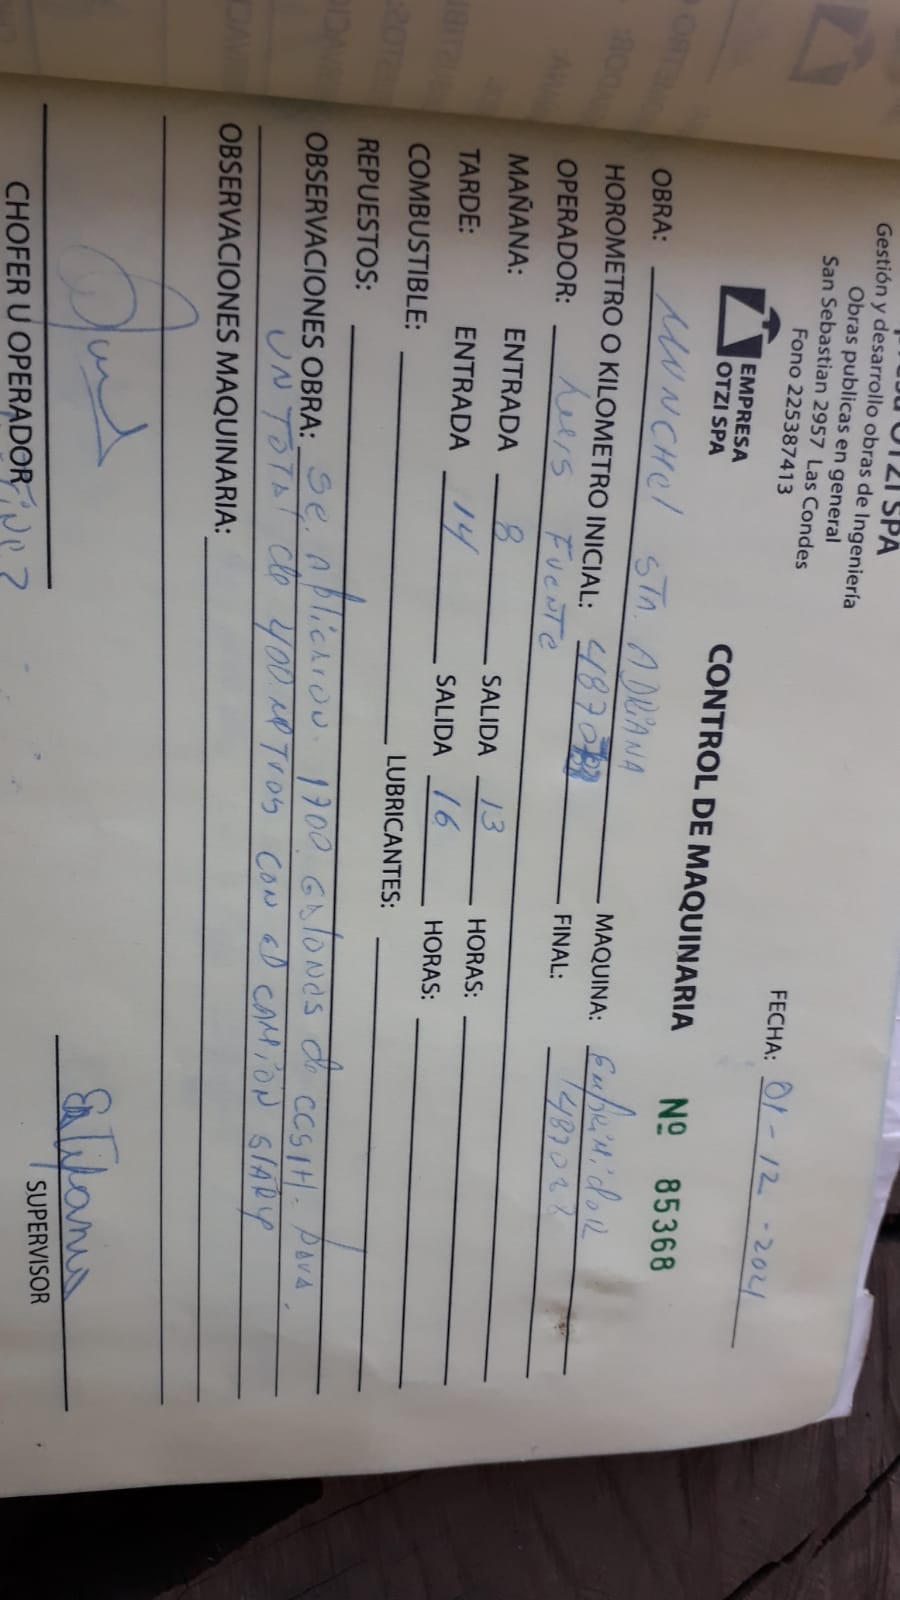 Empresa OTZI SPA
Gestión y desarrollo obras de Ingeniería
Obras publicas en general
San Sebastian 2957 Las Condes
Fono 225387413
EMPRESA
OTZI SPA
FECHA: 01-12-2021
CONTROL DE MAQUINARIA
Nº 85368
OBRA: MUNCHEl STA. ADRIANA
MAQUINA:
HOROMETRO O KILOMETRO INICIAL: 4870
FINAL:
OPERADOR: Luis FuenTe
MAÑANA: ENTRADA 8 SALIDA 13 HORAS:
TARDE: ENTRADA 14 SALIDA 16 HORAS:
COMBUSTIBLE: LUBRICANTES:
REPUESTOS:
OBSERVACIONES OBRA: Se Aplicaron 1700 Galones de CCS1H. para
UN TOTAL de 400 MeTros CON el CAMION
OBSERVACIONES MAQUINARIA:
CHOFER U OPERADOR
SUPERVISOR